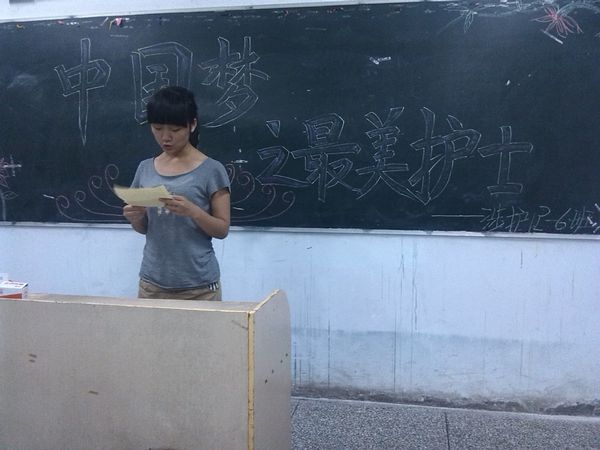 中国梦
之最美护士